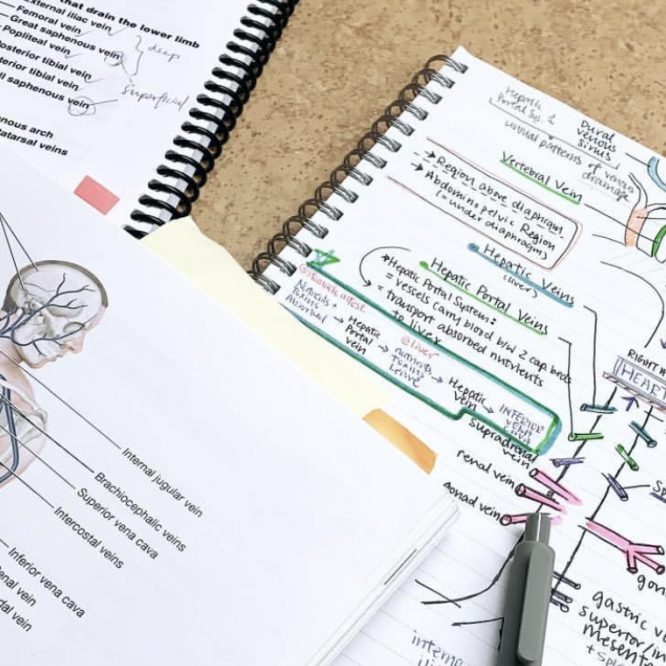 that drain the lower limb
External iliac vein
Femoral vein
Great saphenous vein
Popliteal vein
osterior tibial vein
terior tibial vein
ll saphenous vein
deep
superficial
enous arch
tatarsal veins
Internal jugular vein
Brachiocephalic veins
Superior vena cava
Intercostal veins
Inferior vena cava
enal vein
dal vein
Hepatic
Portal Sys. &
Dural
venous
sinus
unusual patterns of venous
drainage
Vertebral Vein
→ Region above diaphragm
→ Abdominopelvic Region
(= under diaphragm)
Hepatic Veins
(liver)
Hepatic Portal Veins
*Hepatic Portal System:
= vessels carry blood b/w 2 cap beds
= transport absorbed nutrients
to liver
Nutrients +
toxins
Absorbed
→ Hepatic
Portal
vein
→ @liver
nutrients
toxins
Leave
→ Hepatic
vein
→ INFERIOR
VENA
CAVA
RIGHT
HEART
suprarenal
vein
renal vein
gonad vein
gon
gastric v
superior/in
mesent
+ spl
interna